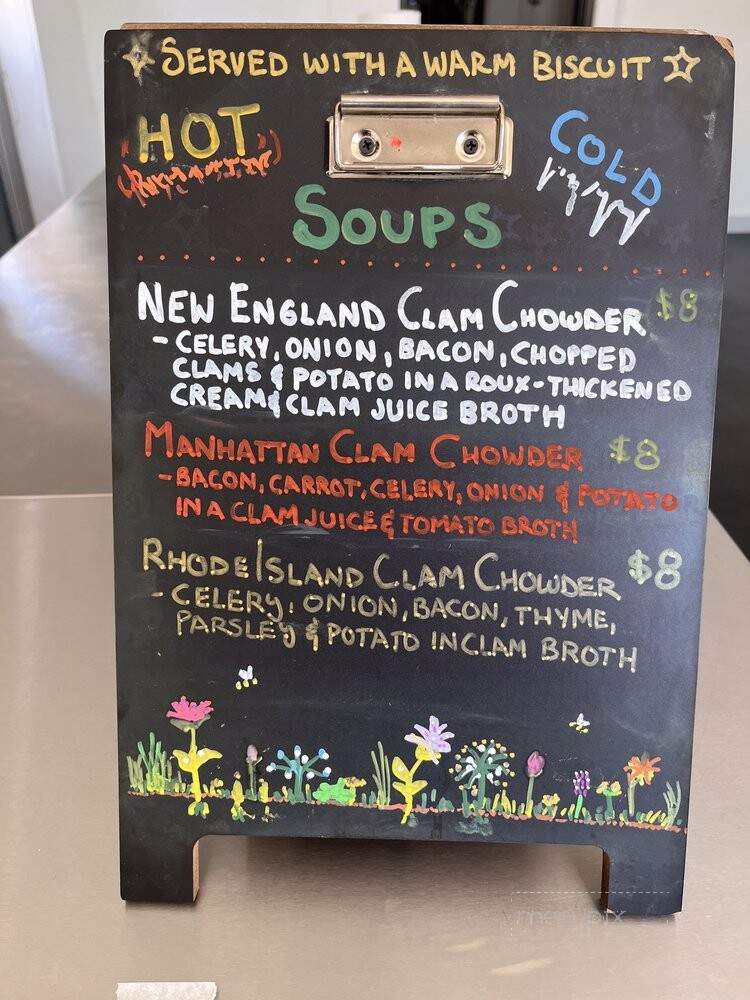 SERVED WITH A WARM BISCUIT
HOT
COLD
SOUPS
NEW ENGLAND CLAM CHOWDER $8
- CELERY, ONION, BACON, CHOPPED
CLAMS & POTATO IN A ROUX-THICKENED
CREAM & CLAM JUICE BROTH
MANHATTAN CLAM CHOWDER $8
- BACON, CARROT, CELERY, ONION & POTATO
IN A CLAM JUICE & TOMATO BROTH
RHODE ISLAND CLAM CHOWDER $8
- CELERY, ONION, BACON, THYME,
PARSLEY & POTATO IN CLAM BROTH
menupix